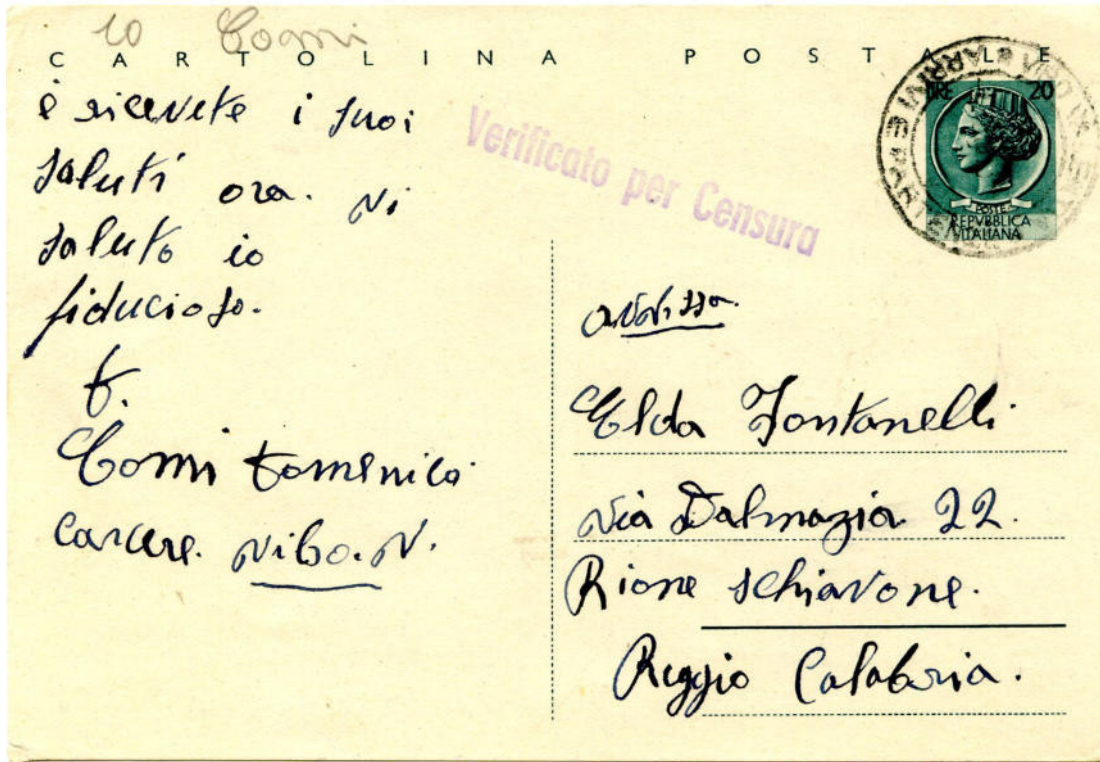 10 Comi
CARTOLINA POSTALE
è ricevete i suoi
saluti ora. Vi
saluto io
fiducioso.
F.
Comi Domenico
carcere. Vibo. V.
Verificato per Censura
LIRE 20
POSTE
REPVBBLICA
ITALIANA
Elda Fontanelli
Via Dalmazia 22.
Rione Schiavone.
Reggio Calabria.